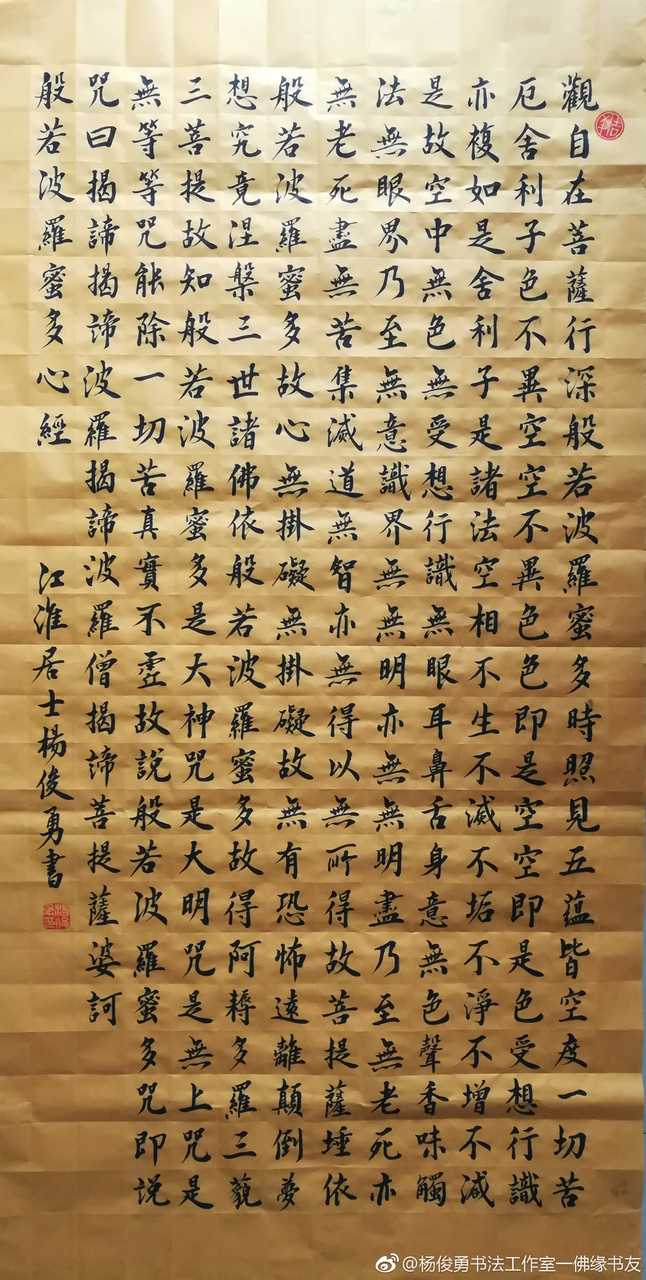 觀自在菩薩行深般若波羅蜜多時照見五蘊皆空度一切苦
厄舍利子色不異空空不異色色即是空空即是色受想行識
亦複如是舍利子是諸法空相不生不滅不垢不淨不增不減
是故空中無色無受想行識無眼耳鼻舌身意無色聲香味觸
法無眼界乃至無意識界無無明亦無無明盡乃至無老死亦
無老死盡無苦集滅道無智亦無得以無所得故菩提薩埵依
般若波羅蜜多故心無掛礙無掛礙故無有恐怖遠離顛倒夢
想究竟涅槃三世諸佛依般若波羅蜜多故得阿耨多羅三藐
三菩提故知般若波羅蜜多是大神咒是大明咒是無上咒是
無等等咒能除一切苦真實不虛故說般若波羅蜜多咒即説
咒曰揭諦揭諦波羅揭諦波羅僧揭諦菩提薩婆訶
般若波羅蜜多心經
江淮居士楊俊勇書
@杨俊勇书法工作室一佛缘书友